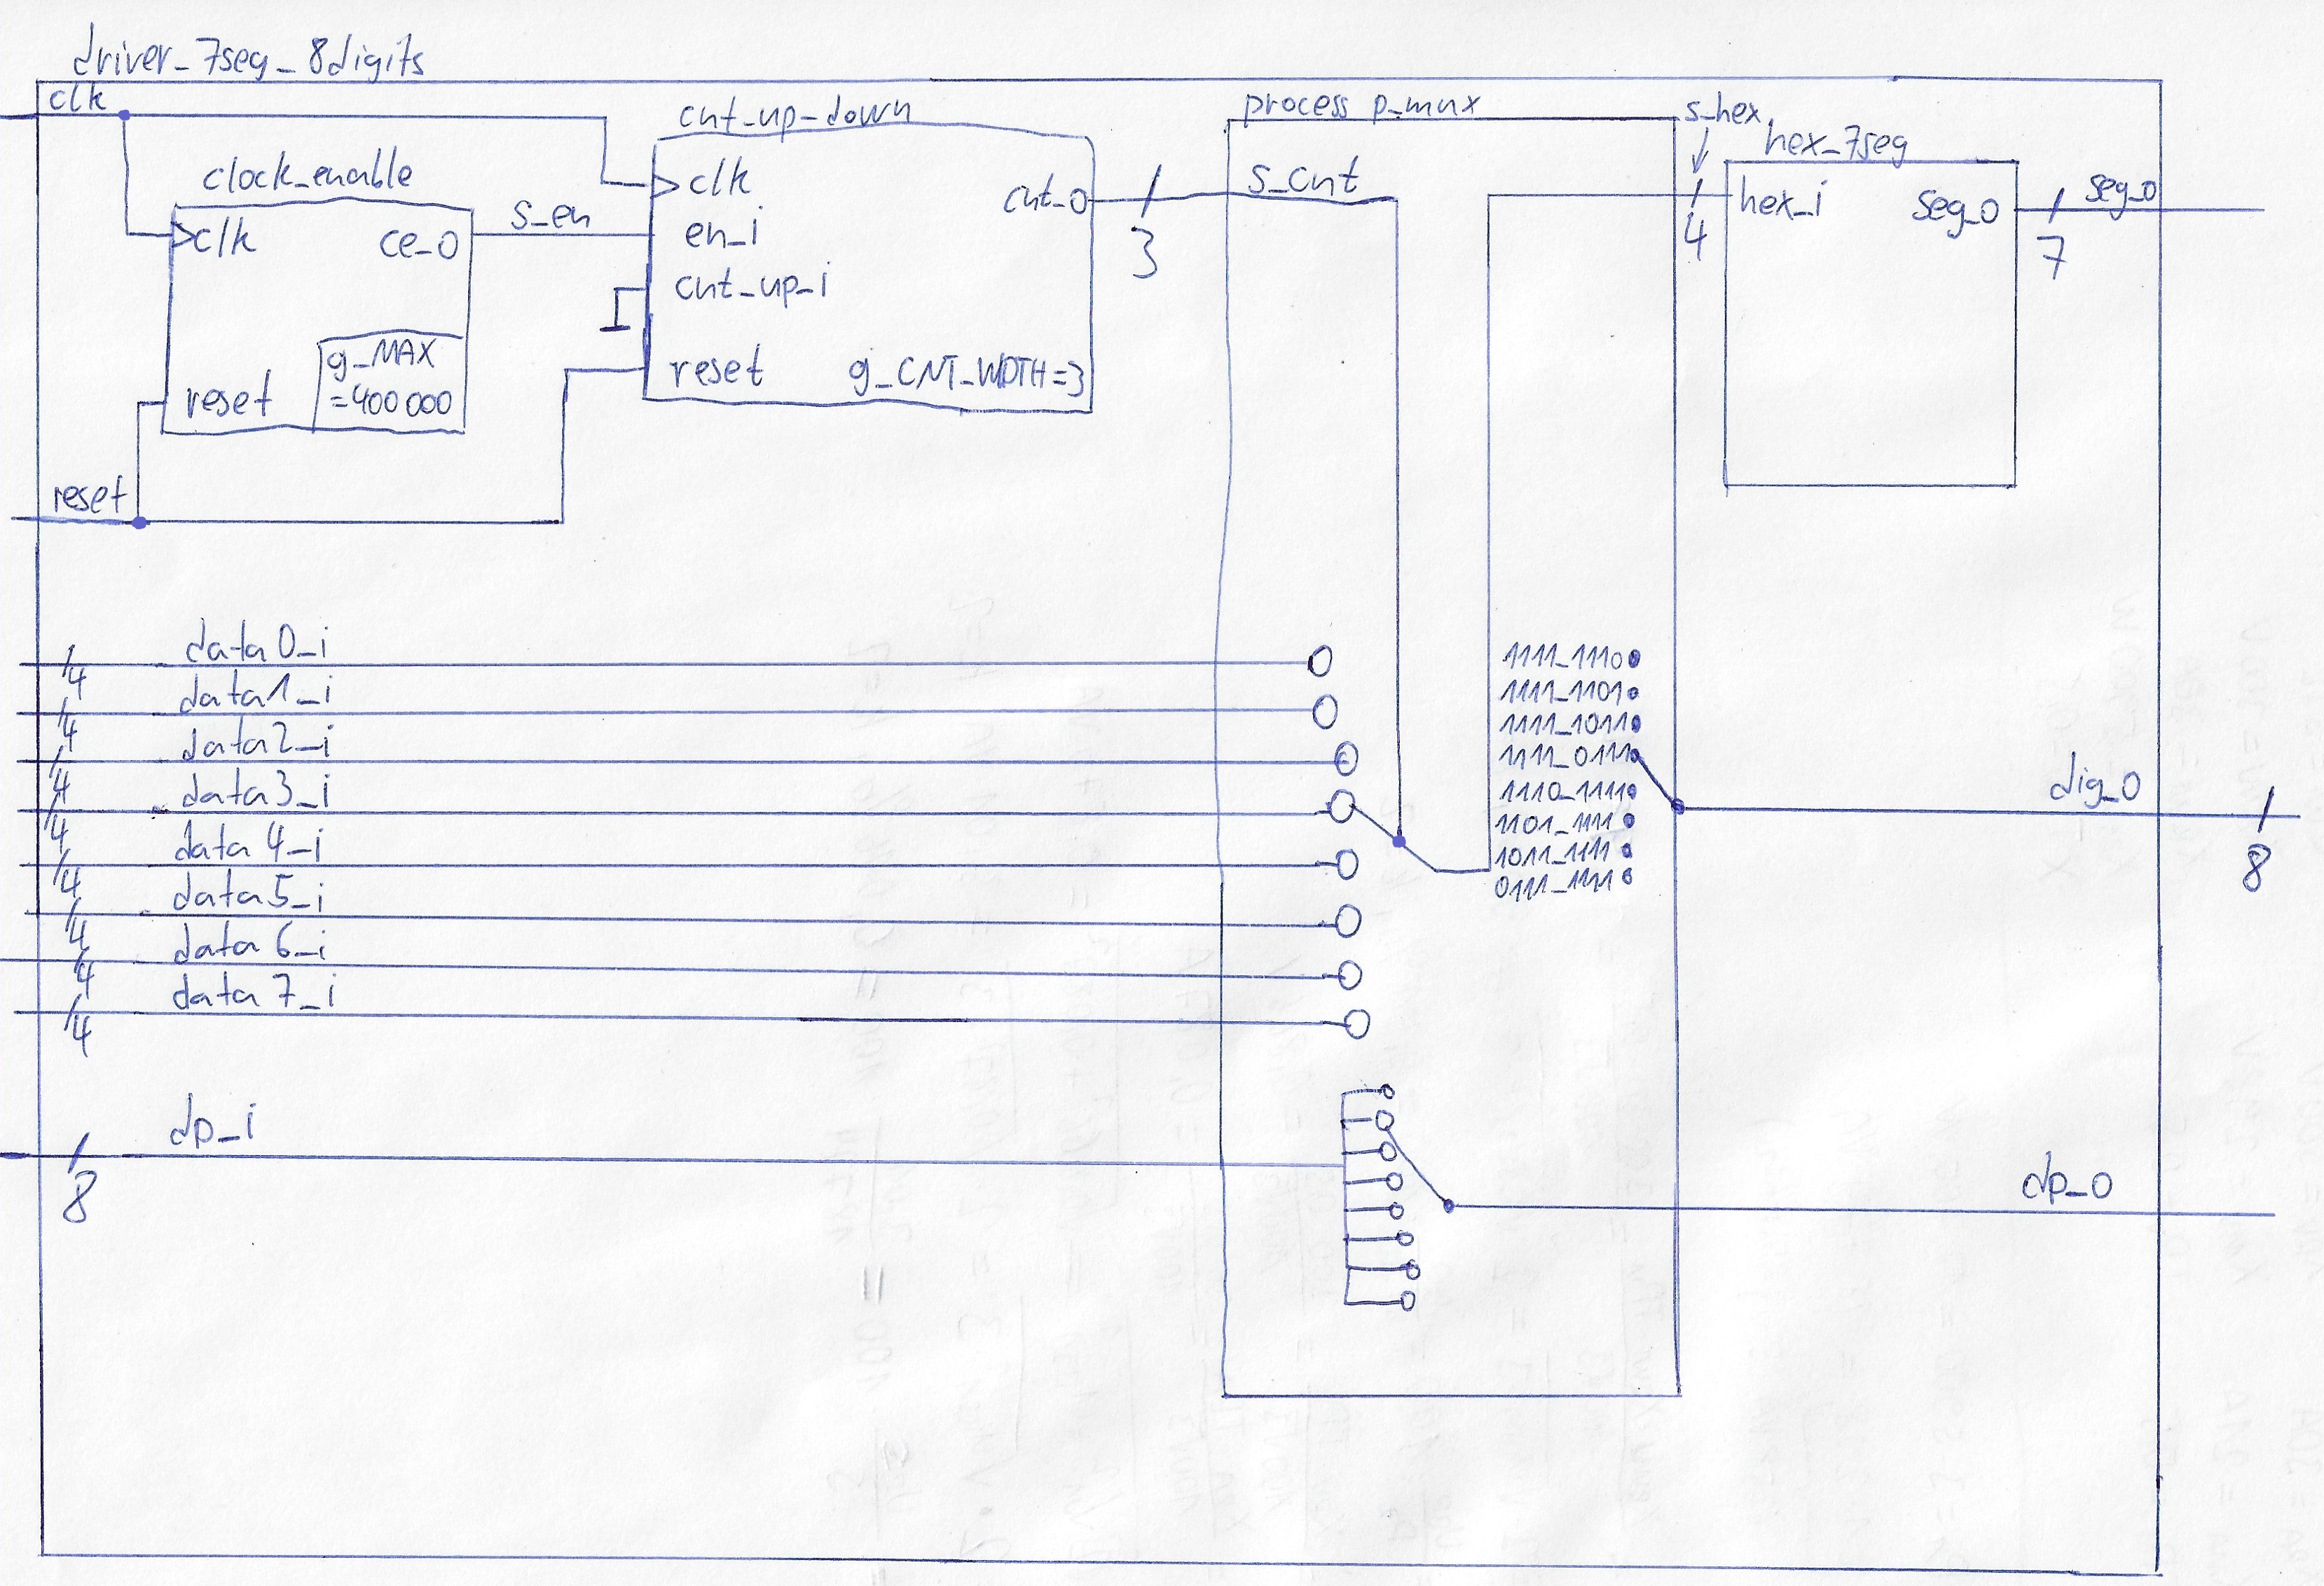 driver_7seg_8digits
clk
clock_enable
clk
ce_o
reset
g_MAX
=400 000
s_en
cnt_up_down
clk
en_i
cnt_up_i
reset
cnt_o
g_CNT_WIDTH=3
3
reset
process p_mux
s_cnt
s_hex
4
hex_7seg
hex_i
seg_o
7
seg_o
data0_i
4
data1_i
4
data2_i
4
data3_i
4
data4_i
4
data5_i
4
data6_i
4
data7_i
4
1111_1110
1111_1101
1111_1011
1111_0111
1110_1111
1101_1111
1011_1111
0111_1111
dig_o
8
dp_i
8
dp_o